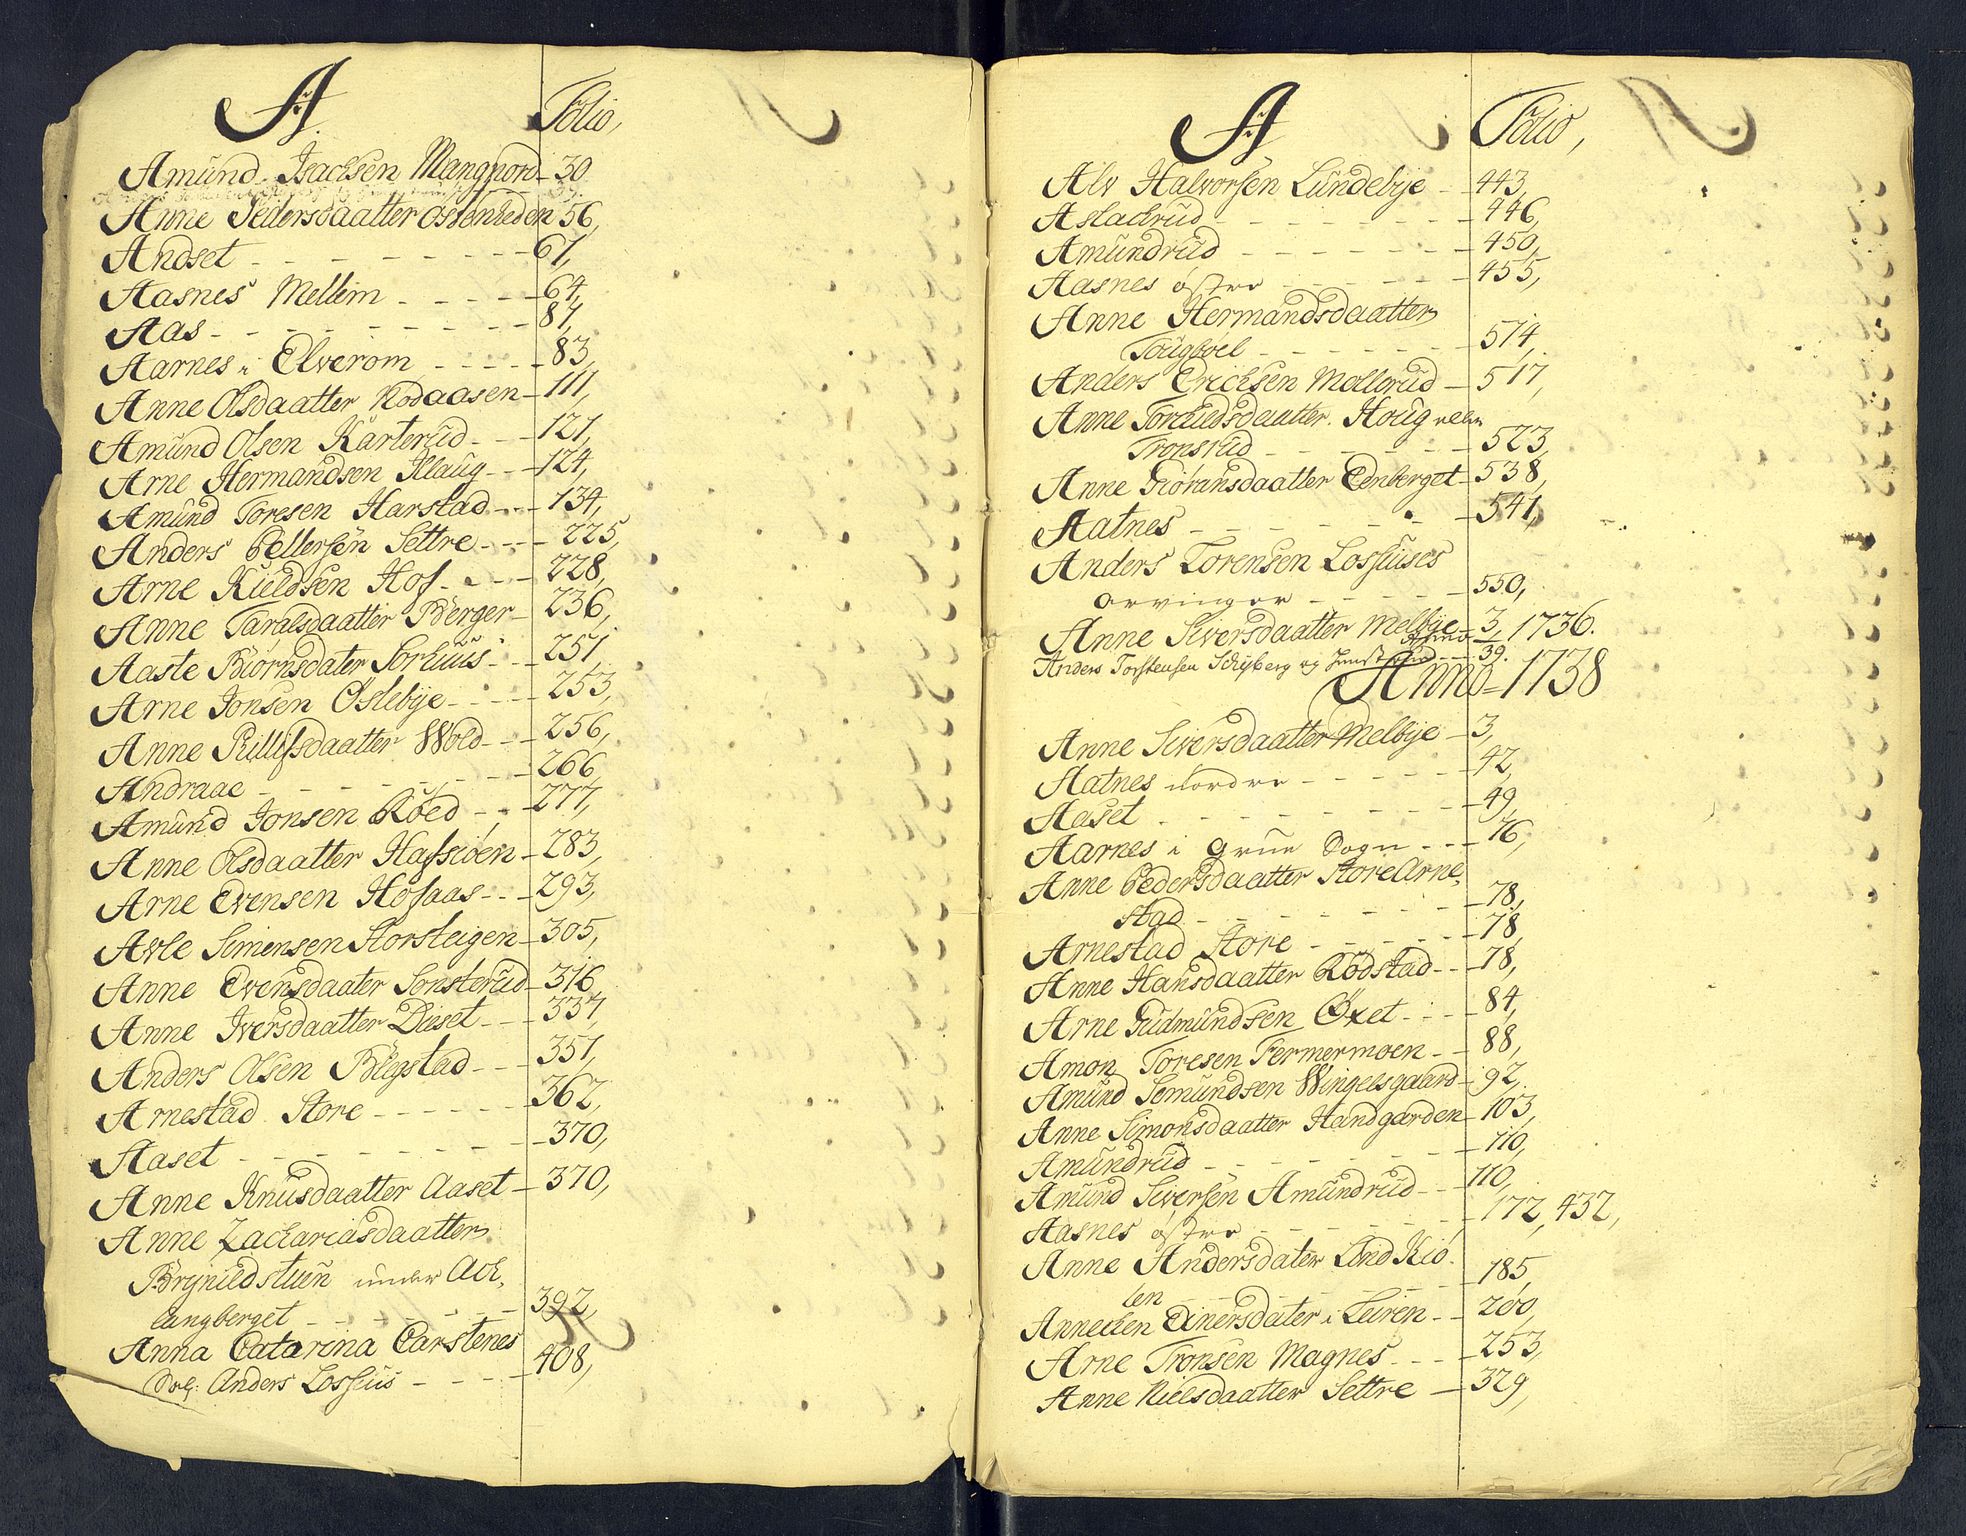 A. Folio,
Amund Isachsen Mangnord 30
Anne Pedersdaatter Ossenheden 56,
Andset 61,
Aasnes Mellem 64,
Aas 81,
Aarnes i Elverom 83,
Anne Olsdaatter Rodaasen 111,
Amund Olsen Karterud 121,
Arne Hermandsen Illaug 124,
Amund Toresen Harstad 134,
Anders Pettersen Settre 225,
Arne Kieldsen Hof 228,
Anne Taralsdaatter Berger 236,
Aaste Biörnsdater Sorhuus 251,
Arne Jonsen Oslebye 253,
Anne Rillifsdaatter Wold 256,
Andraae 266,
Amund Jonsen Röed 277,
Anne Olsdaatter Hafsiöen 283,
Arne Evensen Hofaas 293,
Avle Simensen Storsteigen 305,
Anne Evensdaater Sonsterud 316,
Anne Iversdaatter Diset 337,
Anders Olsen Bölgstad 351,
Arnestad Store 362,
Aaset 370,
Anne Knusdaatter Aaset 370,
Anne Zachariasdaatter
Brynildstuen under Ack,
langberget 392,
Anna Catarina Carstenes
Sal: Anders Lossius 408,
A Folio,
Alv Halvorsen Lundebye 443,
Aslackrud 446,
Amundrud 450,
Aasnes östre 455,
Anne Hermandsdaatter
Tougboel 514,
Anders Erichsen Mellerud 517,
Anne Torkildsdaatter Houg eller
Tronsrud 523,
Anne Giöransdaatter Eenberget 538,
Aatnes 541,
Anders Lorensen Lossiuses
arvinger 550,
Anne Siversdaatter Melbye 3, 1736.
Anders Torstensen Schyberg og 39.
Anno 1738
Anne Siversdaatter Melbye 3,
Aatnes nordre 42,
Aaset 49,
Aarnes i Grue Sogn 76,
Anne Pedersdaatter Store Arne,
stad 78,
Arnestad Store 78,
Anne Hansdaatter Rödstad 78,
Arne Gudmundsen Öxet 84,
Amon Toresen Fermermoen 88,
Amund Semundsen Wingelsgaard 92,
Anne Simonsdaatter Handgarden 103,
Amundrud 110,
Amund Siversen Amundrud 110,
Aasnes östre 172, 432,
Anne Andersdater Lind Kiö.
len 185,
Annecken Einersdater i Leiren 200,
Arne Tronsen Magnes 253,
Anne Nielsdaatter Settre 329,